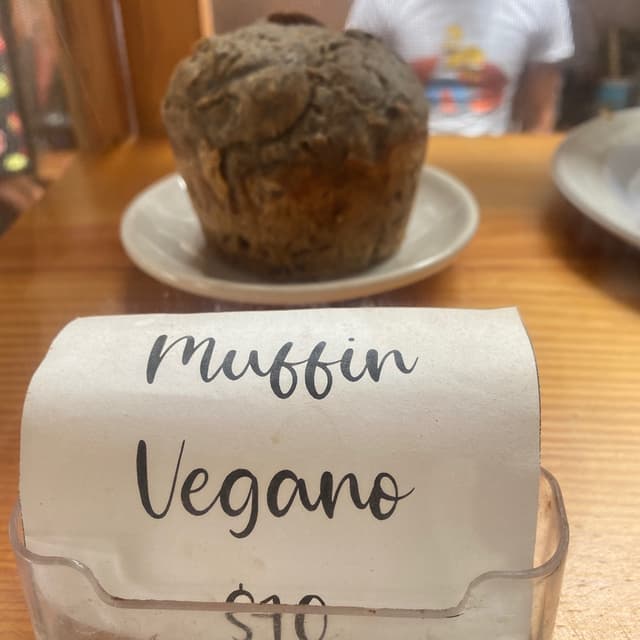 Muffin
Vegano
$10